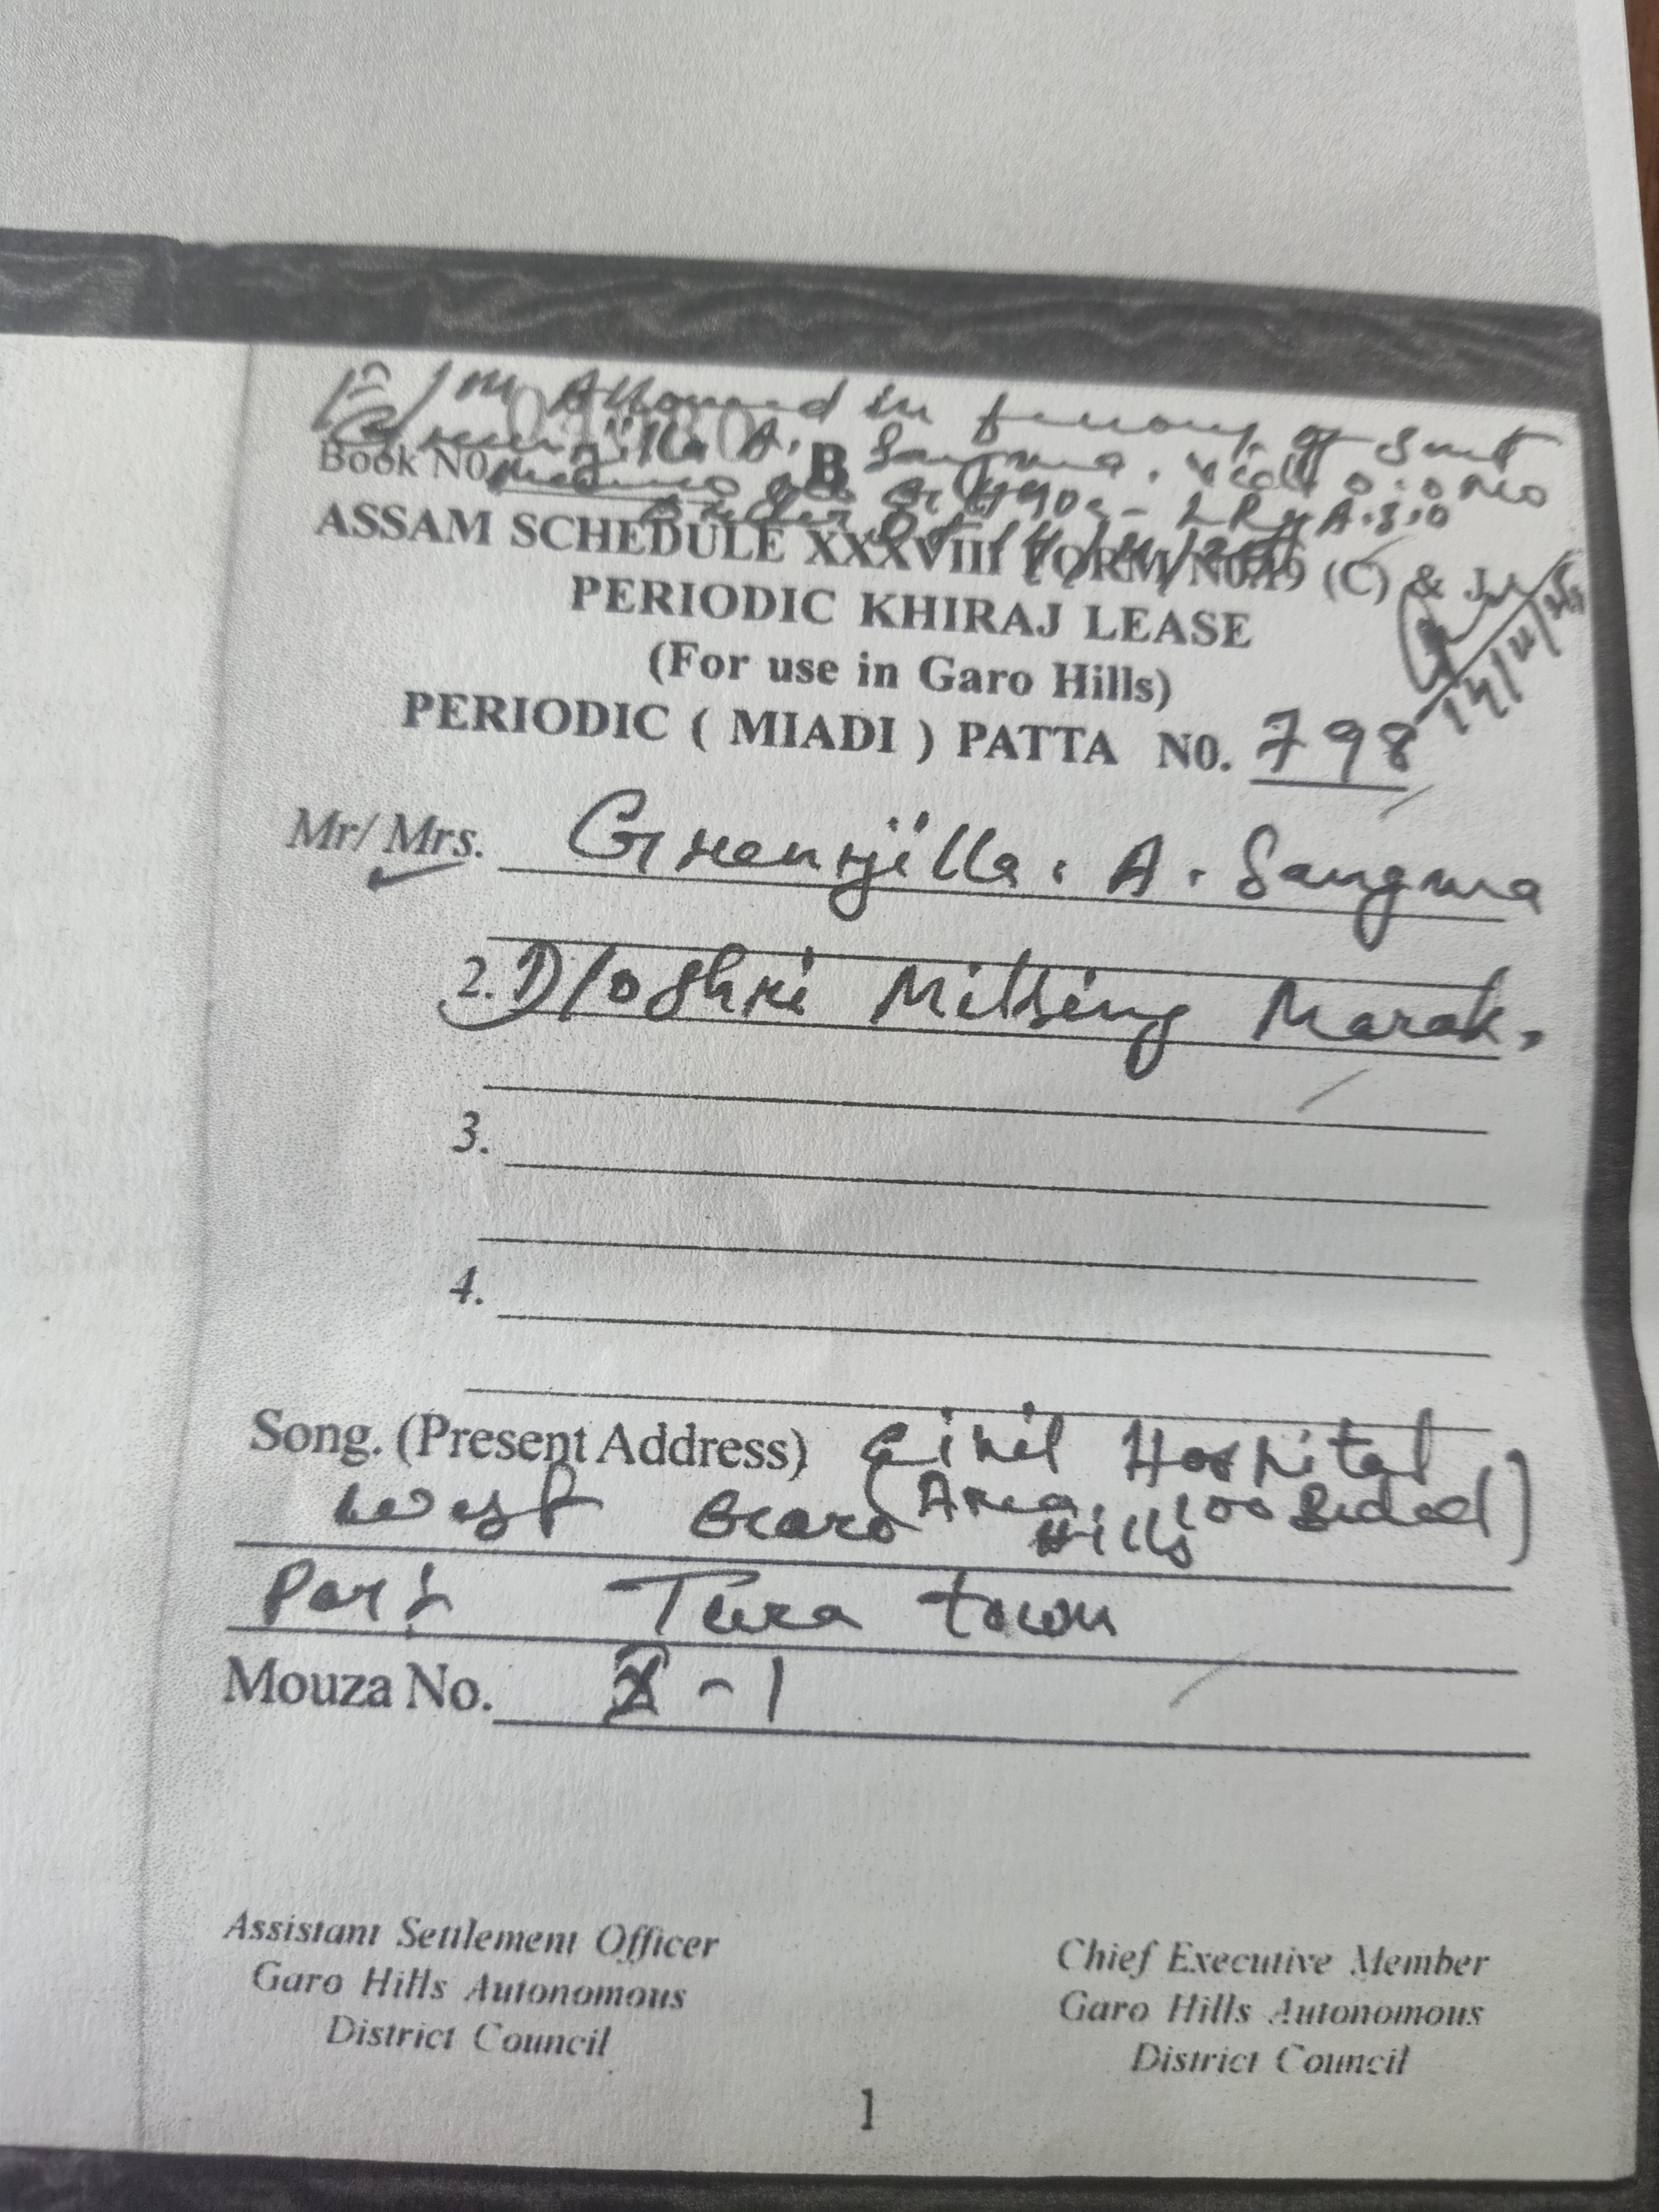 Allowed in favour of Smt
Greenjilla A. Sangma. vide
Book N0. B
ASSAM SCHEDULE XXXVIII FORM N0.19 (C) & J
PERIODIC KHIRAJ LEASE
(For use in Garo Hills)
PERIODIC ( MIADI ) PATTA N0. 798
Mr/ Mrs. Greenjilla. A. Sangma
2. D/o Shri Millsing Marak.
3.
4.
Song. (Present Address) Civil Hospital
(Area, 100 Beded)
West Garo Hills
Part Tura town
Mouza No. - 1
Assistant Settlement Officer
Garo Hills Autonomous
District Council
Chief Executive Member
Garo Hills Autonomous
District Council
1